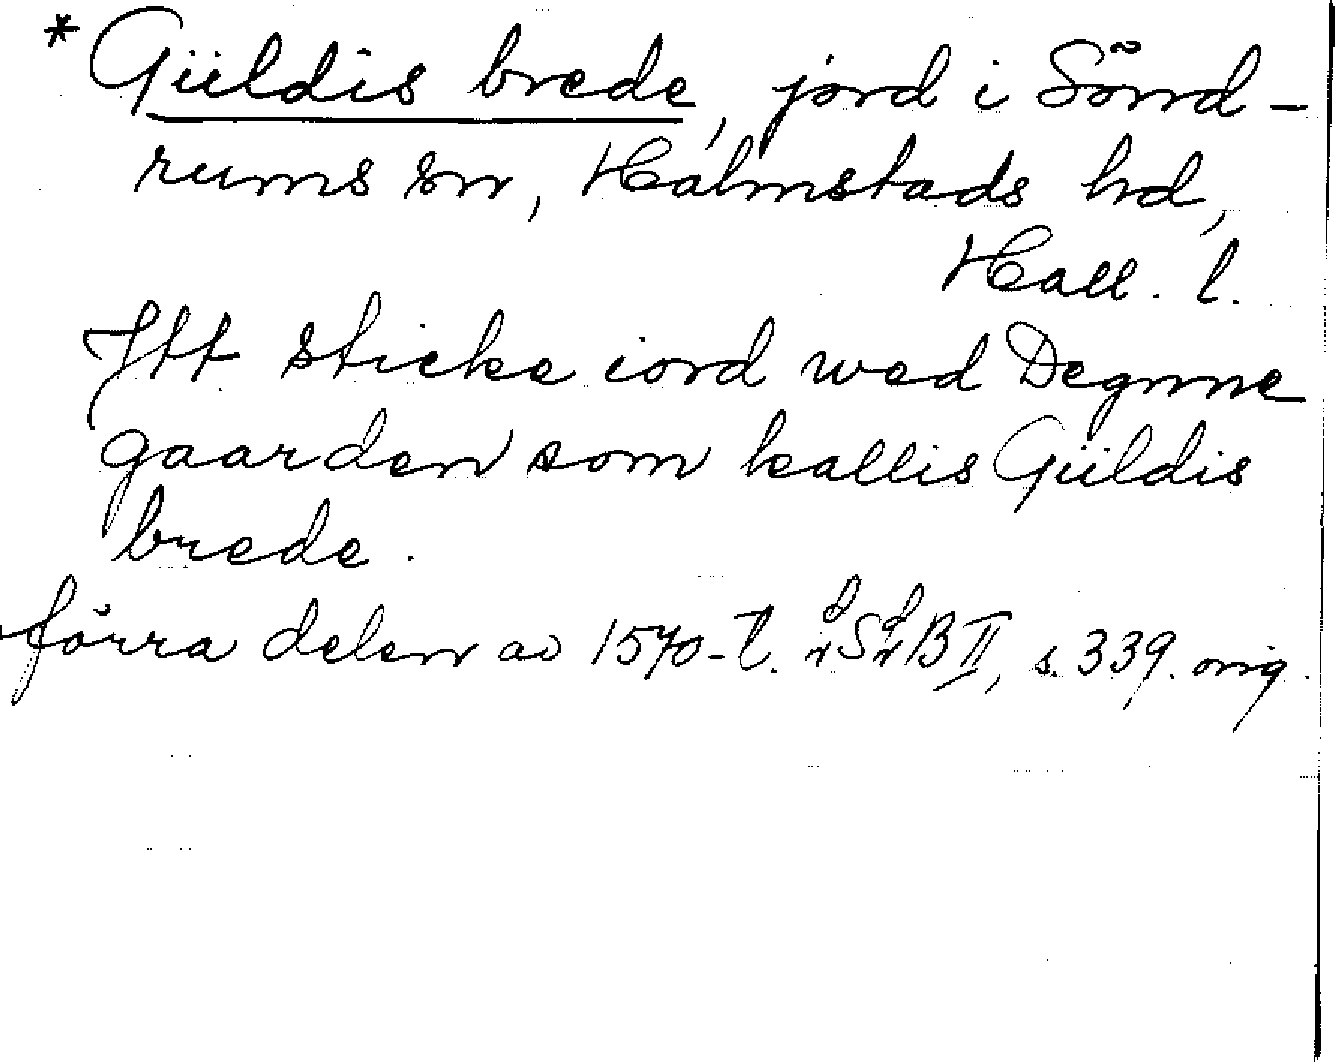 * Güldis brede, jord i Sönd-
rums sn, Halmstads hd,
Hall. l.
Itt sticke iord wed Degnne
gaarden som kallis Güldis
brede.
förra delen av 1570-t. B II, s. 339. orig.